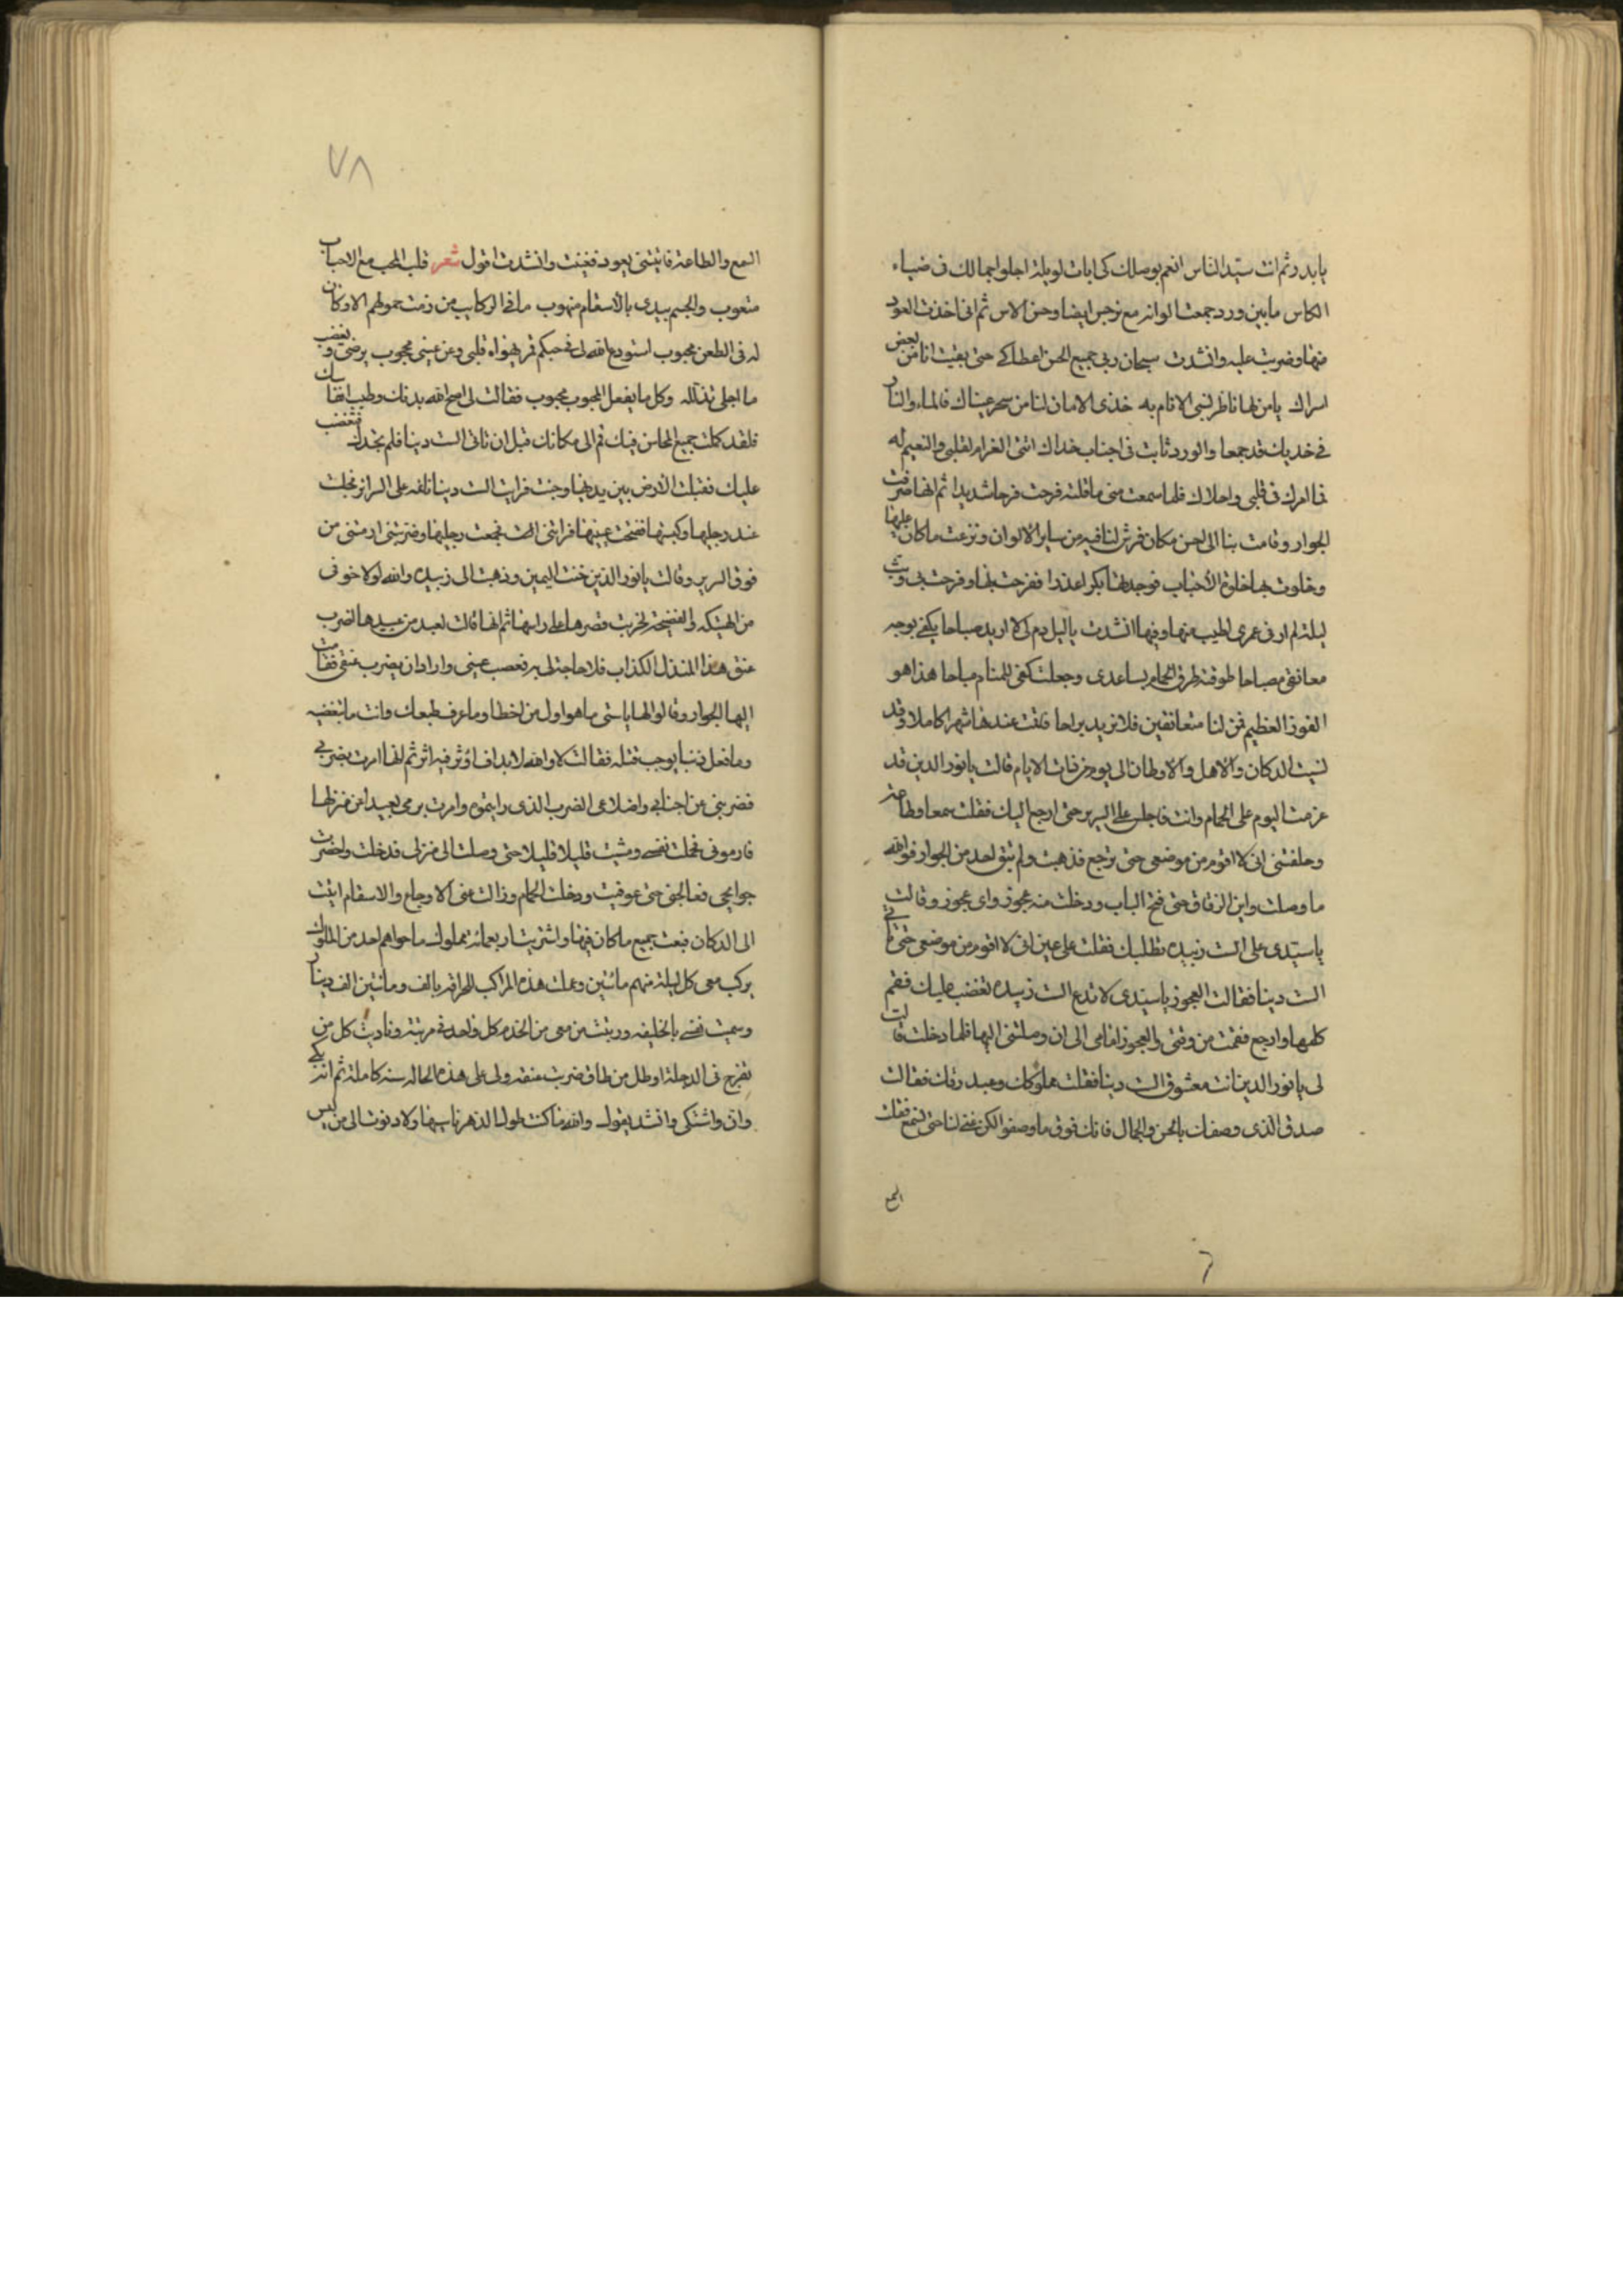 يا بدر ثم انت سيد الناس انعم بوصلك كى ابات لو ليلة اجلوا جمالك فى ضياء
الكاس ما بين ورد جمعت الوانه مع نرجس ايضا وحسن الاس ثم انى اخذت العود
منها وضربت عليه وانشدت سبحان ربى جميع الحسن اعطاك حتى بقيت انا من بعض
اسراك يا من لها ناظر تسبى الانام به خذى الامان لنا من سحر عيناك فالماء والنار
فى خديك قد جمعا والورد نابت فى اجناب خداك انتى الغرام لقلبى والنعيم له
فما امرك فى قلبى واحلاك فلما سمعت منى ما قلته فرحت فرحا شديدا ثم انها صرفت
الجوار وقامت بنا الى احسن مكان فرش لنا فيه من ساير الالوان ونزعت ما كان عليها
وخلوت بها خلوة الاحباب فوجدتها بكرا عذرا ففرحت بها وفرحت بى وبت
ليلة لم ار فى عمرى اطيب منها وفيها انشدت يا ليل دم لى لا اريد صباحا يكفى بوجه
معانقى مصباحا طوقته طوق الحمام بساعدى وجعلت كفى للمنام مباحا هذا هو
الفوز العظيم فمن لنا متعانقين فلا نريد براحا فقت عندها شهرا كاملا وقد
نسيت الدكان والاهل والاوطان الى يوم من ذات الايام قالت يا نور الدين قد
عزمت اليوم على الحمام وانت فاجلس على السرير حتى ارجع اليك فقلت سمعا وطاعة
وحلفتنى انى لا اقوم من موضعى حتى ترجع فذهبت ولم تبق احد من الجوار فوالله
ما وصلت راس الزقاق حتى فتح الباب ودخلت منه عجوز واى عجوز وقالت
يا سيدى على الست زبيده تطلبك فقلت على عين انى لا اقوم من موضعى حتى تاتى
الست دينا فقالت العجوز يا سيدى لا تدع الست زبيده تغضب عليك فقم
كلمها وارجع فقمت من وقتى والعجوز امامى الى ان وصلتنى اليها فلما دخلت قالت
لى يا نور الدين انت معشوق الست دينا فقلت مملوكك وعبد رقك فقالت
صدق الذى وصفك بالحسن والجمال فانك فوق ما وصفوا لكن غنى لنا حتى نسمع فقلت
السمع
٧٨
السمع والطاعة فاتيتنى بعود فغنيت وانشدت اقول شعر قلب المحب مع الاحباب
متعوب والجسم بيدى بالاسقام منهوب ما فى الركايب من زمت حمولهم الا وكان
له فى الظعن محبوب استودع الله لى فى حبكم قمر يهواه قلبى وعن عينى محجوب يرضى ويغضب
ما احلى تذلله وكل ما يفعل المحبوب محبوب فقالت لى اصح الله بدنك وطيب انفاسك
فلقد كملت جميع المحاسن فيك قم الى مكانك قبل ان تاتى الست دينا فلم تجدك فتغضب
عليك فقبلت الارض بين يديها وجئت فرايت الست دينا نائمه على السرير فجئت
عند رجليها وكبستها ففتحت عينيها فراتنى الست فجمعت رجليها وضربتنى ارمتنى من
فوق السرير وقالت يا نور الدين خنت اليمين وذهبت الى زبيده والله لولا خوفى
من الهتيكه والفضيحة لخربت قصرها على راسها ثم انها قالت لعبد من عبيدها اضرب
عنق هذا المنذل الكذاب فلا حاجة لى به فعصب عينى واراد ان يضرب عنقى فقامت
اليها الجوار وقالوا لها يا ستى ما هو اول من اخطا وما عرف طبعك وانت ما تبغضيه
وما فعل ذنبا يوجب قتله فقالت لا والله لا بد ان اؤثر فيه اثر ثم انها امرت بضربى
فضربنى عن اجنابى واضلاعى الضرب الذى رايتموه وامرت برمى بعيدا عن منزلها
فارمونى فحملت نفسى ومشيت قليلا قليلا حتى وصلت الى منزلى فدخلت واحضرت
جرايحى فعالجنى حتى عوفيت ودخلت الحمام وزالت عنى الاوجاع والاسقام اتيت
الى الدكان فبعت جميع ما كان فيها واشتريت اربعمائة مملوك ما حواهم احد من الملوك
يركب معى كل ليلة منهم مائتين وعملت هذه المراكب الحراقه بالف ومائتين الف دينار
وسميت نفسى بالخليفه ورتبت من معى من الخدم كل واحد فى مرتبته وناديت كل من
تفرج فى الدجلة او طل من طاق ضربت عنقه ولى على هذه الحاله سنه كاملة ثم انه بكى
وان واشتكى وانشد يقول والله ما كنت طول الدهر ناسيها ولا دنوت الى من ليس